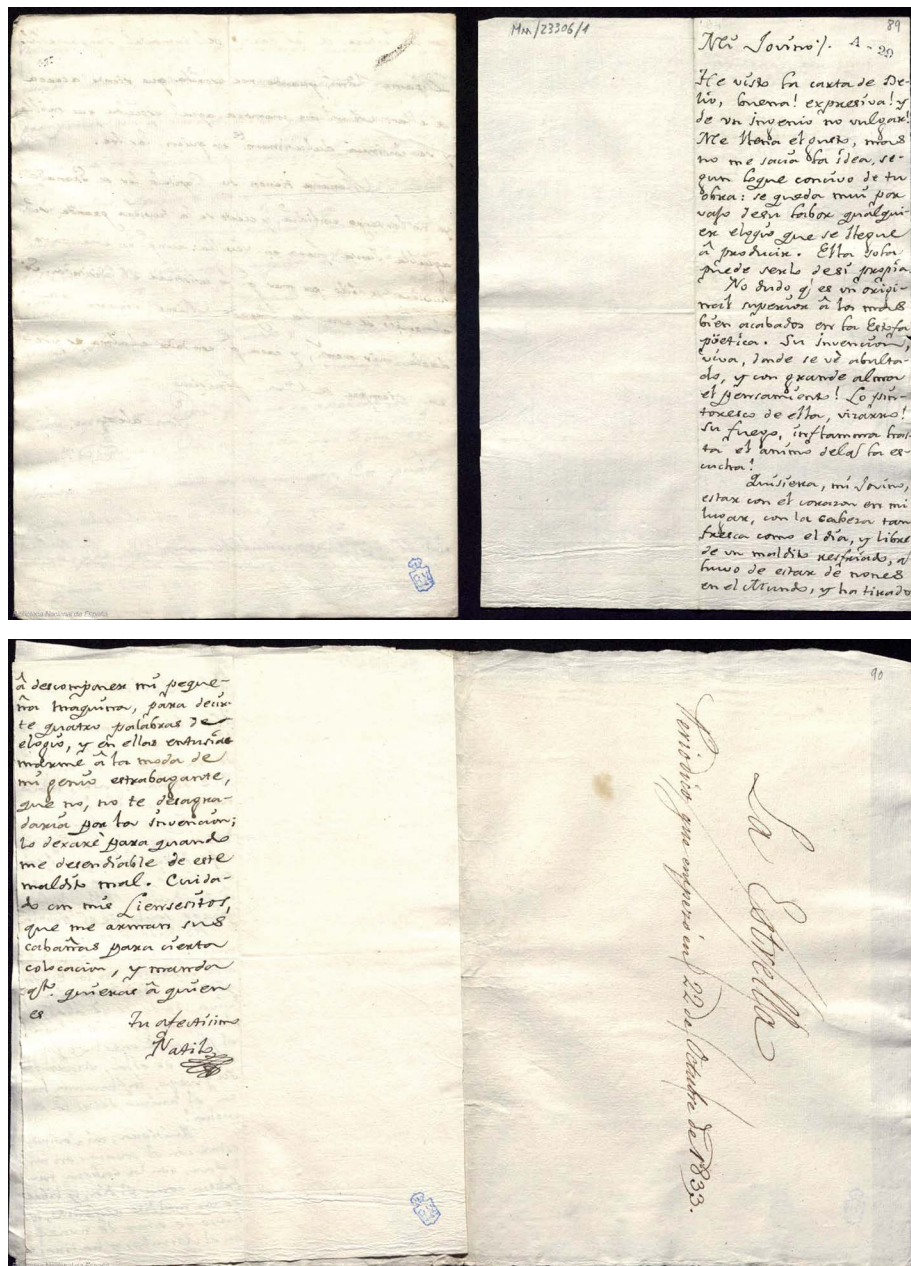 Mss/23306/1
89
Mi Jovino/. A-29
He visto la carta de De-
lio, buena! expresiva! y
de un ingenio no vulgar!
Me llena el gusto, mas
no me sacia la idea, se-
gun loque concivo de tu
obra: se queda mui por
vajo desu labor qualqui-
er elogio que se llegue
â producir. Esta sola
puede serlo desi propia.
No dudo q̃ es un origi-
nal superior â los mas
bien acabados en la Estofa
pöetica. Su invencion,
viva, donde se vé abulta-
do, y con grande alma
el pensamiento! Lo pin-
toresco de ella, vizarro!
Su fuego, inflamma has-
ta el animo delq̃ la es-
cucha!
Quisiera, mi Jovino,
estar con el corazon en mi
lugar, con la cabeza tan
fresca como el dia, y libre
de un maldito resfriado, q̃
huvo de estar de nones
en el Mundo, y ha tirado
90
â descomponer mi peque-
ña maquina, para decir-
te quatro palabras de
elogio, y en ellas entusias-
marme â la moda de
mi genio estrabagante,
que no, no te desagra-
daria por la invencion;
lo dexarè para quando
me desendiable de este
maldito mal. Cuida-
do con mis Liensesitos,
que me arman sus
cabañas para cierta
colocacion, y manda
qto. quieras â quien
es
tu afectisimo
Batilo
La Estrella
Periodico que empezó en 22 de Octubre de 1833.